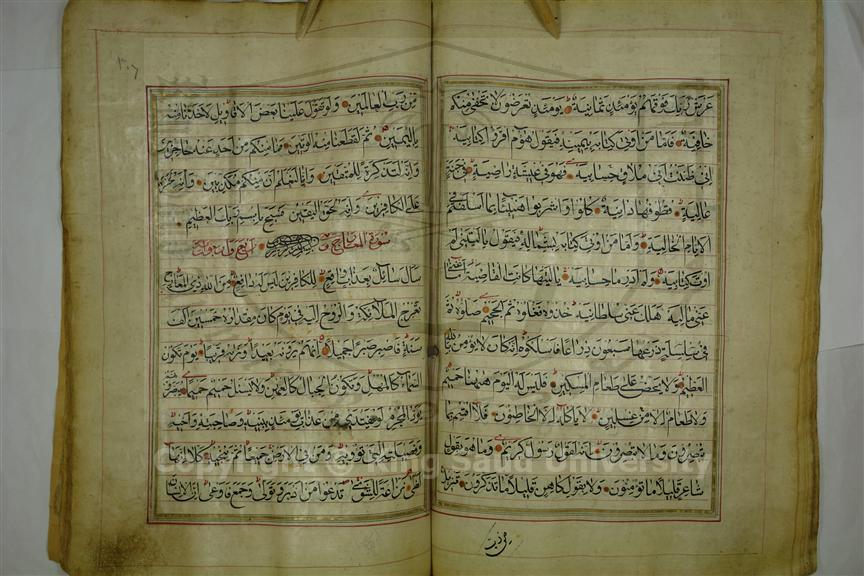 عرش ربك فوقهم يومئذ ثمانية يومئذ تعرضون لا تخفى منكم
خافية فاما من اوتى كتابه بيمينه فيقول هاؤم اقرؤا كتابيه
انى ظننت انى ملاق حسابيه فهو فى عيشة راضية فى جنة
عالية قطوفها دانية كلوا واشربوا هنيئا بما اسلفتم فى
الايام الخالية واما من اوتى كتابه بشماله فيقول يا ليتنى لم
اوت كتابيه ولم ادر ما حسابيه يا ليتها كانت القاضية ما اغنى
عنى ماليه هلك عنى سلطانيه خذوه فغلوه ثم الجحيم صلوه ثم
فى سلسلة ذرعها سبعون ذراعا فاسلكوه انه كان لا يؤمن بالله
العظيم ولا يحض على طعام المسكين فليس له اليوم ههنا حميم
ولا طعام الا من غسلين لا ياكله الا الخاطؤن فلا اقسم بما
تبصرون وما لا تبصرون انه لقول رسول كريم وما هو بقول
شاعر قليلا ما تؤمنون ولا بقول كاهن قليلا ما تذكرون تنزيل
من رب العالمين ولو تقول علينا بعض الاقاويل لاخذنا منه
باليمين ثم لقطعنا منه الوتين فما منكم من احد عنه حاجزين
وانه لتذكرة للمتقين وانا لنعلم ان منكم مكذبين وانه لحسرة
على الكافرين وانه لحق اليقين فسبح باسم ربك العظيم
سورة المعارج
سال سائل بعذاب واقع للكافرين ليس له دافع من الله ذى المعارج
تعرج الملائكة والروح اليه فى يوم كان مقداره خمسين الف
سنة فاصبر صبرا جميلا انهم يرونه بعيدا ونريه قريبا يوم تكون
السماء كالمهل وتكون الجبال كالعهن ولا يسئل حميم حميما يبصرونهم
يود المجرم لو يفتدى من عذاب يومئذ ببنيه وصاحبته واخيه
وفصيلته التى تؤويه ومن فى الارض جميعا ثم ينجيه كلا انها
لظى نزاعة للشوى تدعوا من ادبر وتولى وجمع فاوعى ان الانسان
Copyright © King Saud University